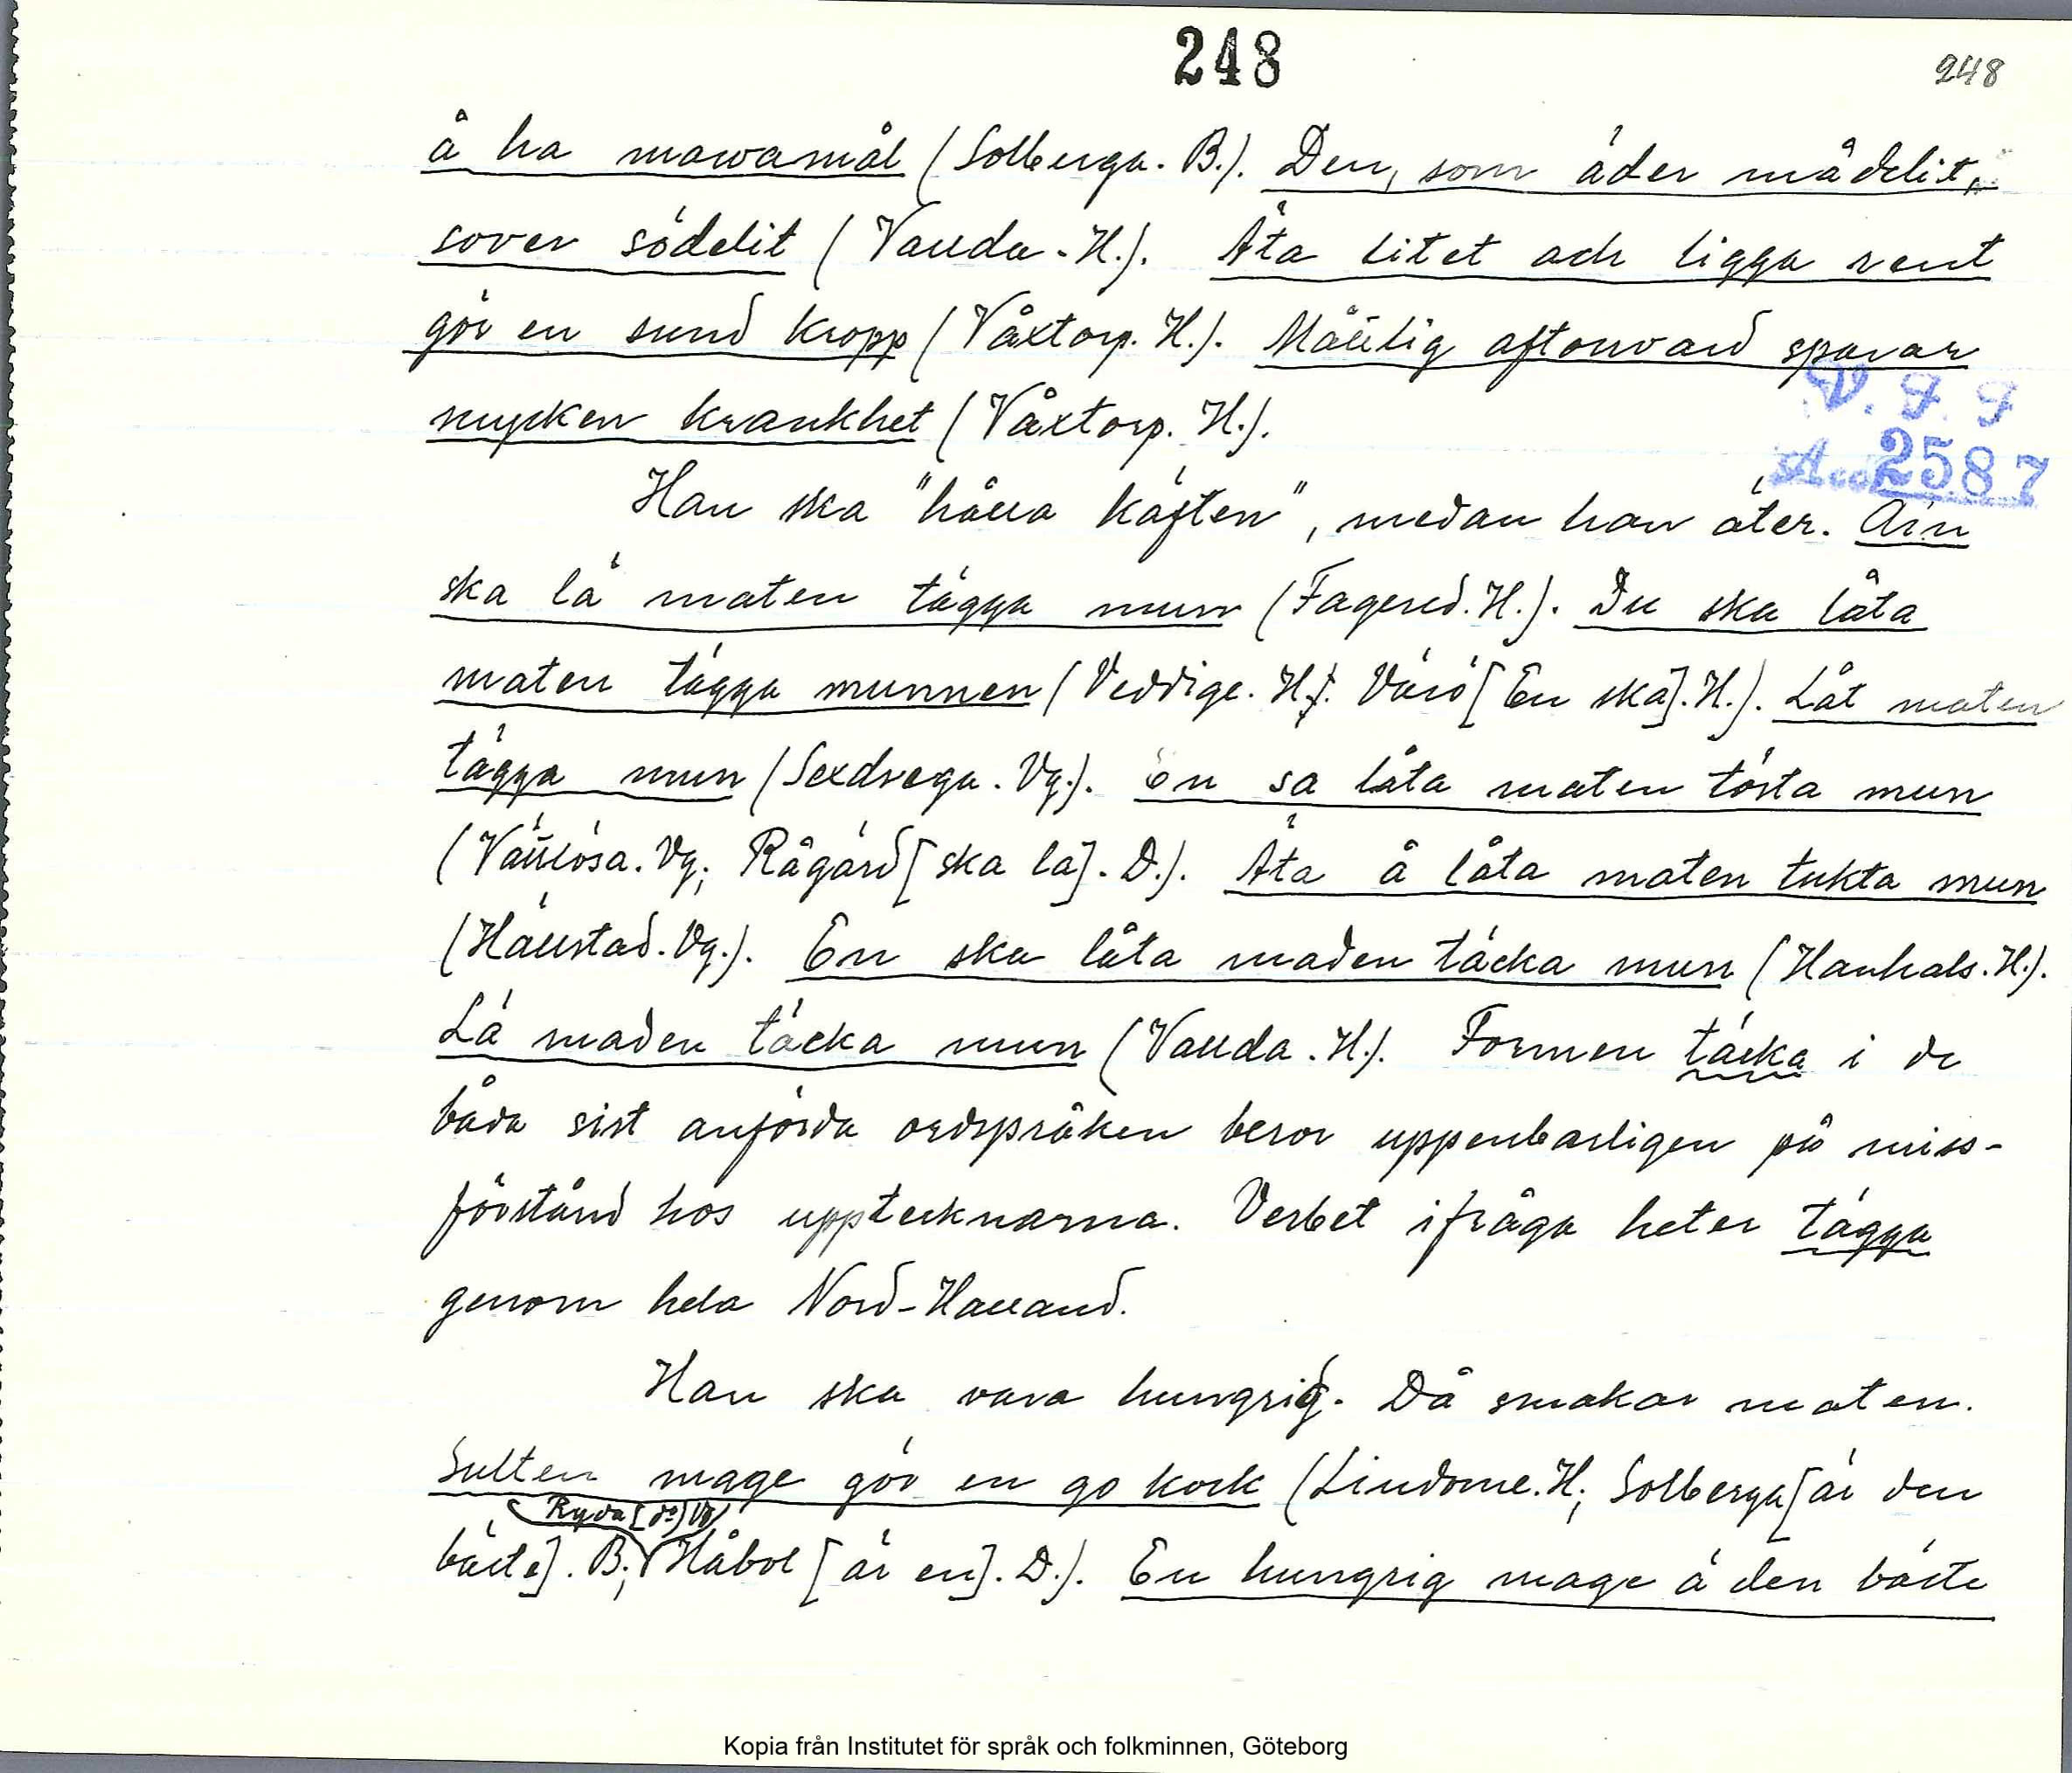 248
248
å ha mawamål (Solberga. B.). Den, som äder mådelit,
sover södelit (Valda. H.). Äta litet och ligga rent
gör en sund kropp (Våxtorp. H.). Måttlig aftonvard sparar
mycken krankhet (Våxtorp. H.).
V. F. F
Acc 2587
Han ska "hålla käften", medan han äter. Ain
ska lå maten tägga mun (Fagered. H.). Du ska låta
maten tägga munnen (Veddige. H.; Värö [En ska]. H.). Låt maten
tägga mun (Sexdrega. Vg.). En sa låta maten tösta mun
(Vättlösa. Vg; Rågärd [ska la]. D.). Äta å låta maten tukta mun
(Hällstad. Vg.). En ska låta maden täcka mun (Hanhals. H.).
Lå maden täcka mun (Valda. H.). Formen täcka i de
båda sist anförda ordspråken beror uppenbarligen på miss-
förstånd hos upptecknarna. Verbet ifråga heter tägga
genom hela Nord-Halland.
Han ska vara hungrig. Då smakar maten.
Sulten mage gör en go kock (Lindome. H; Solberga [är den
Ryda [do] Vg
bäste]. B.; Håbol [är en]. D.). En hungrig mage ä den bäste
Kopia från Institutet för språk och folkminnen, Göteborg